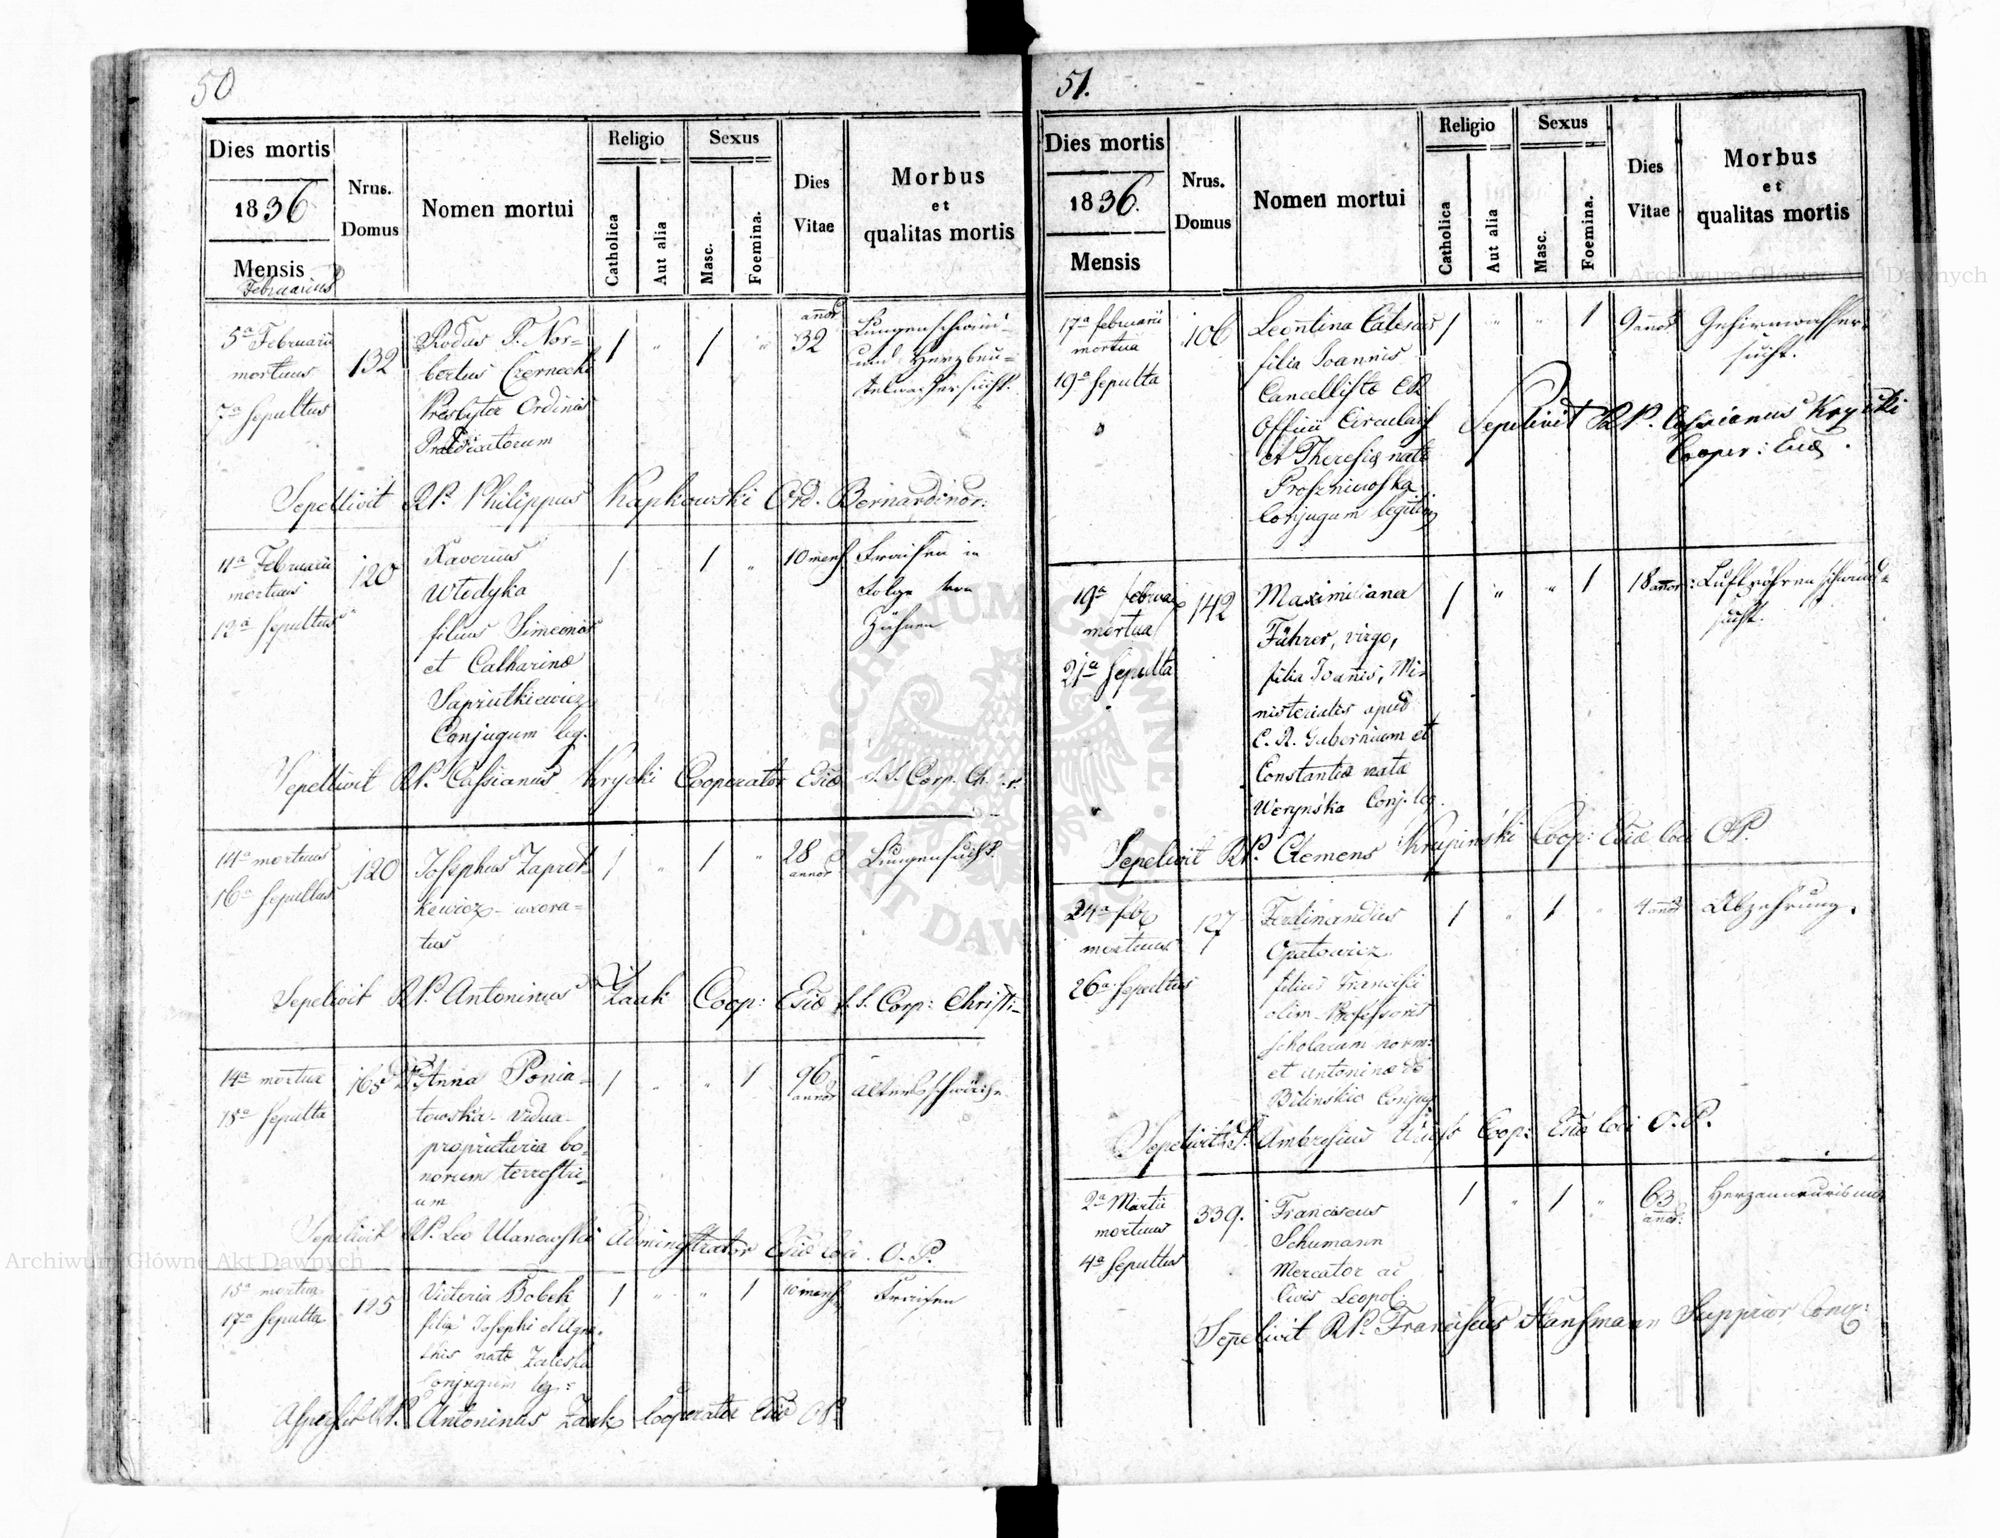 50
Dies mortis
1836
Mensis
Februarius
Nrus.
Domus
Nomen mortui
Religio
Catholica
Aut alia
Sexus
Masc.
Foemina.
Dies
Vitae
Morbus
et
qualitas mortis
5a Februarii
mortuus
7a Sepultus
132
P. Nor-
bertus Czernecki
Presbyter Ordinis
Praedicatorum
1 " 1 "
annor
32
Lungenschwind-
und Herzbeu-
telwassersucht.
Sepellivit RP. Philippus Kapkowski Ord. Bernardinor:
11a Februarii
mortuus
12a Sepultus
120
Xaverius
Wledyka
filius Simeonis
et Catharinae
Saprutkiewicz
Conjugum leg.
1 1 "
10 mens
Fraisen in
Folge von
Zähnen
Sepellivit RP. Cassianus Krycki Cooperator Eccl S.S. Corp.
14a mortuus
16a Sepultus
120
Josephus Zaprut-
kewicz - uxora-
tus
1 " 1 "
28
annor
Lungensucht.
Sepelivit RP. Antoninus Zaak Coop: S.S. Corp: Christi
14a mortua
18a Sepulta
165
Anna Ponia-
towska - vidua -
proprietaria bo-
norum terrestri-
um
1 " " 1
96
annor
Altersschwäche
Sepelivit RP. Leo Ulanowski Administrator loci O.P.
15a mortua
17a Sepulta
125
Victoria Bobek
filia Josephi et Agne-
tis nata Zaleska
Conjugum leg:
1 " " 1
10 mens
Fraisen
RP. Antoninus Zaak Cooperator OP
51.
Dies mortis
1836.
Mensis
Nrus.
Domus
Nomen mortui
Religio
Catholica
Aut alia
Sexus
Masc.
Foemina.
Dies
Vitae
Morbus
et
qualitas mortis
17a februarii
mortua
19a Sepulta
106
Leontina
filia Joannis
Cancellistae CR
Officii Circularis
et Theresiae natae
Proszniewska
Conjugum legitim
1 " " 1
9 annor
Gehirnwasser-
sucht.
Sepelivit RP. Cassianus Krycki
Cooper:
19a februar
mortua
21a Sepulta
142
Maximiliana
Führer, virgo,
filia Joannis, Mi-
nisterialis apud
C. R. Gubernium et
Constantiae natae
Werynska Conj. leg.
1 " " 1
18 annor:
Luftröhrenschwind-
sucht.
Sepelivit RP. Clemens Krupinski Coop: loci OP.
24a feb
mortuus
26a Sepultus
127
Ferdinandus
Opatowicz
filius Francisci
olim Professoris
scholarum norm:
et Antoninae de
Bilinskie Conjug
1 " 1 "
4 annor
Abzehrung.
Sepelivit RP. Ambrosius Coop: loci O.P.
2a Martii
mortuus
4a Sepultus
339.
Franciscus
Schumann
Mercator ac
Civis Leopol:
1 " 1 "
63
annor:
Herzaneurisma
Sepelivit RP. Franciscus Hansmann Supprior
Archiwum Główne Akt Dawnych
Archiwum Główne Akt Dawnych
ARCHIWUM GŁÓWNE AKT DAWNYCH